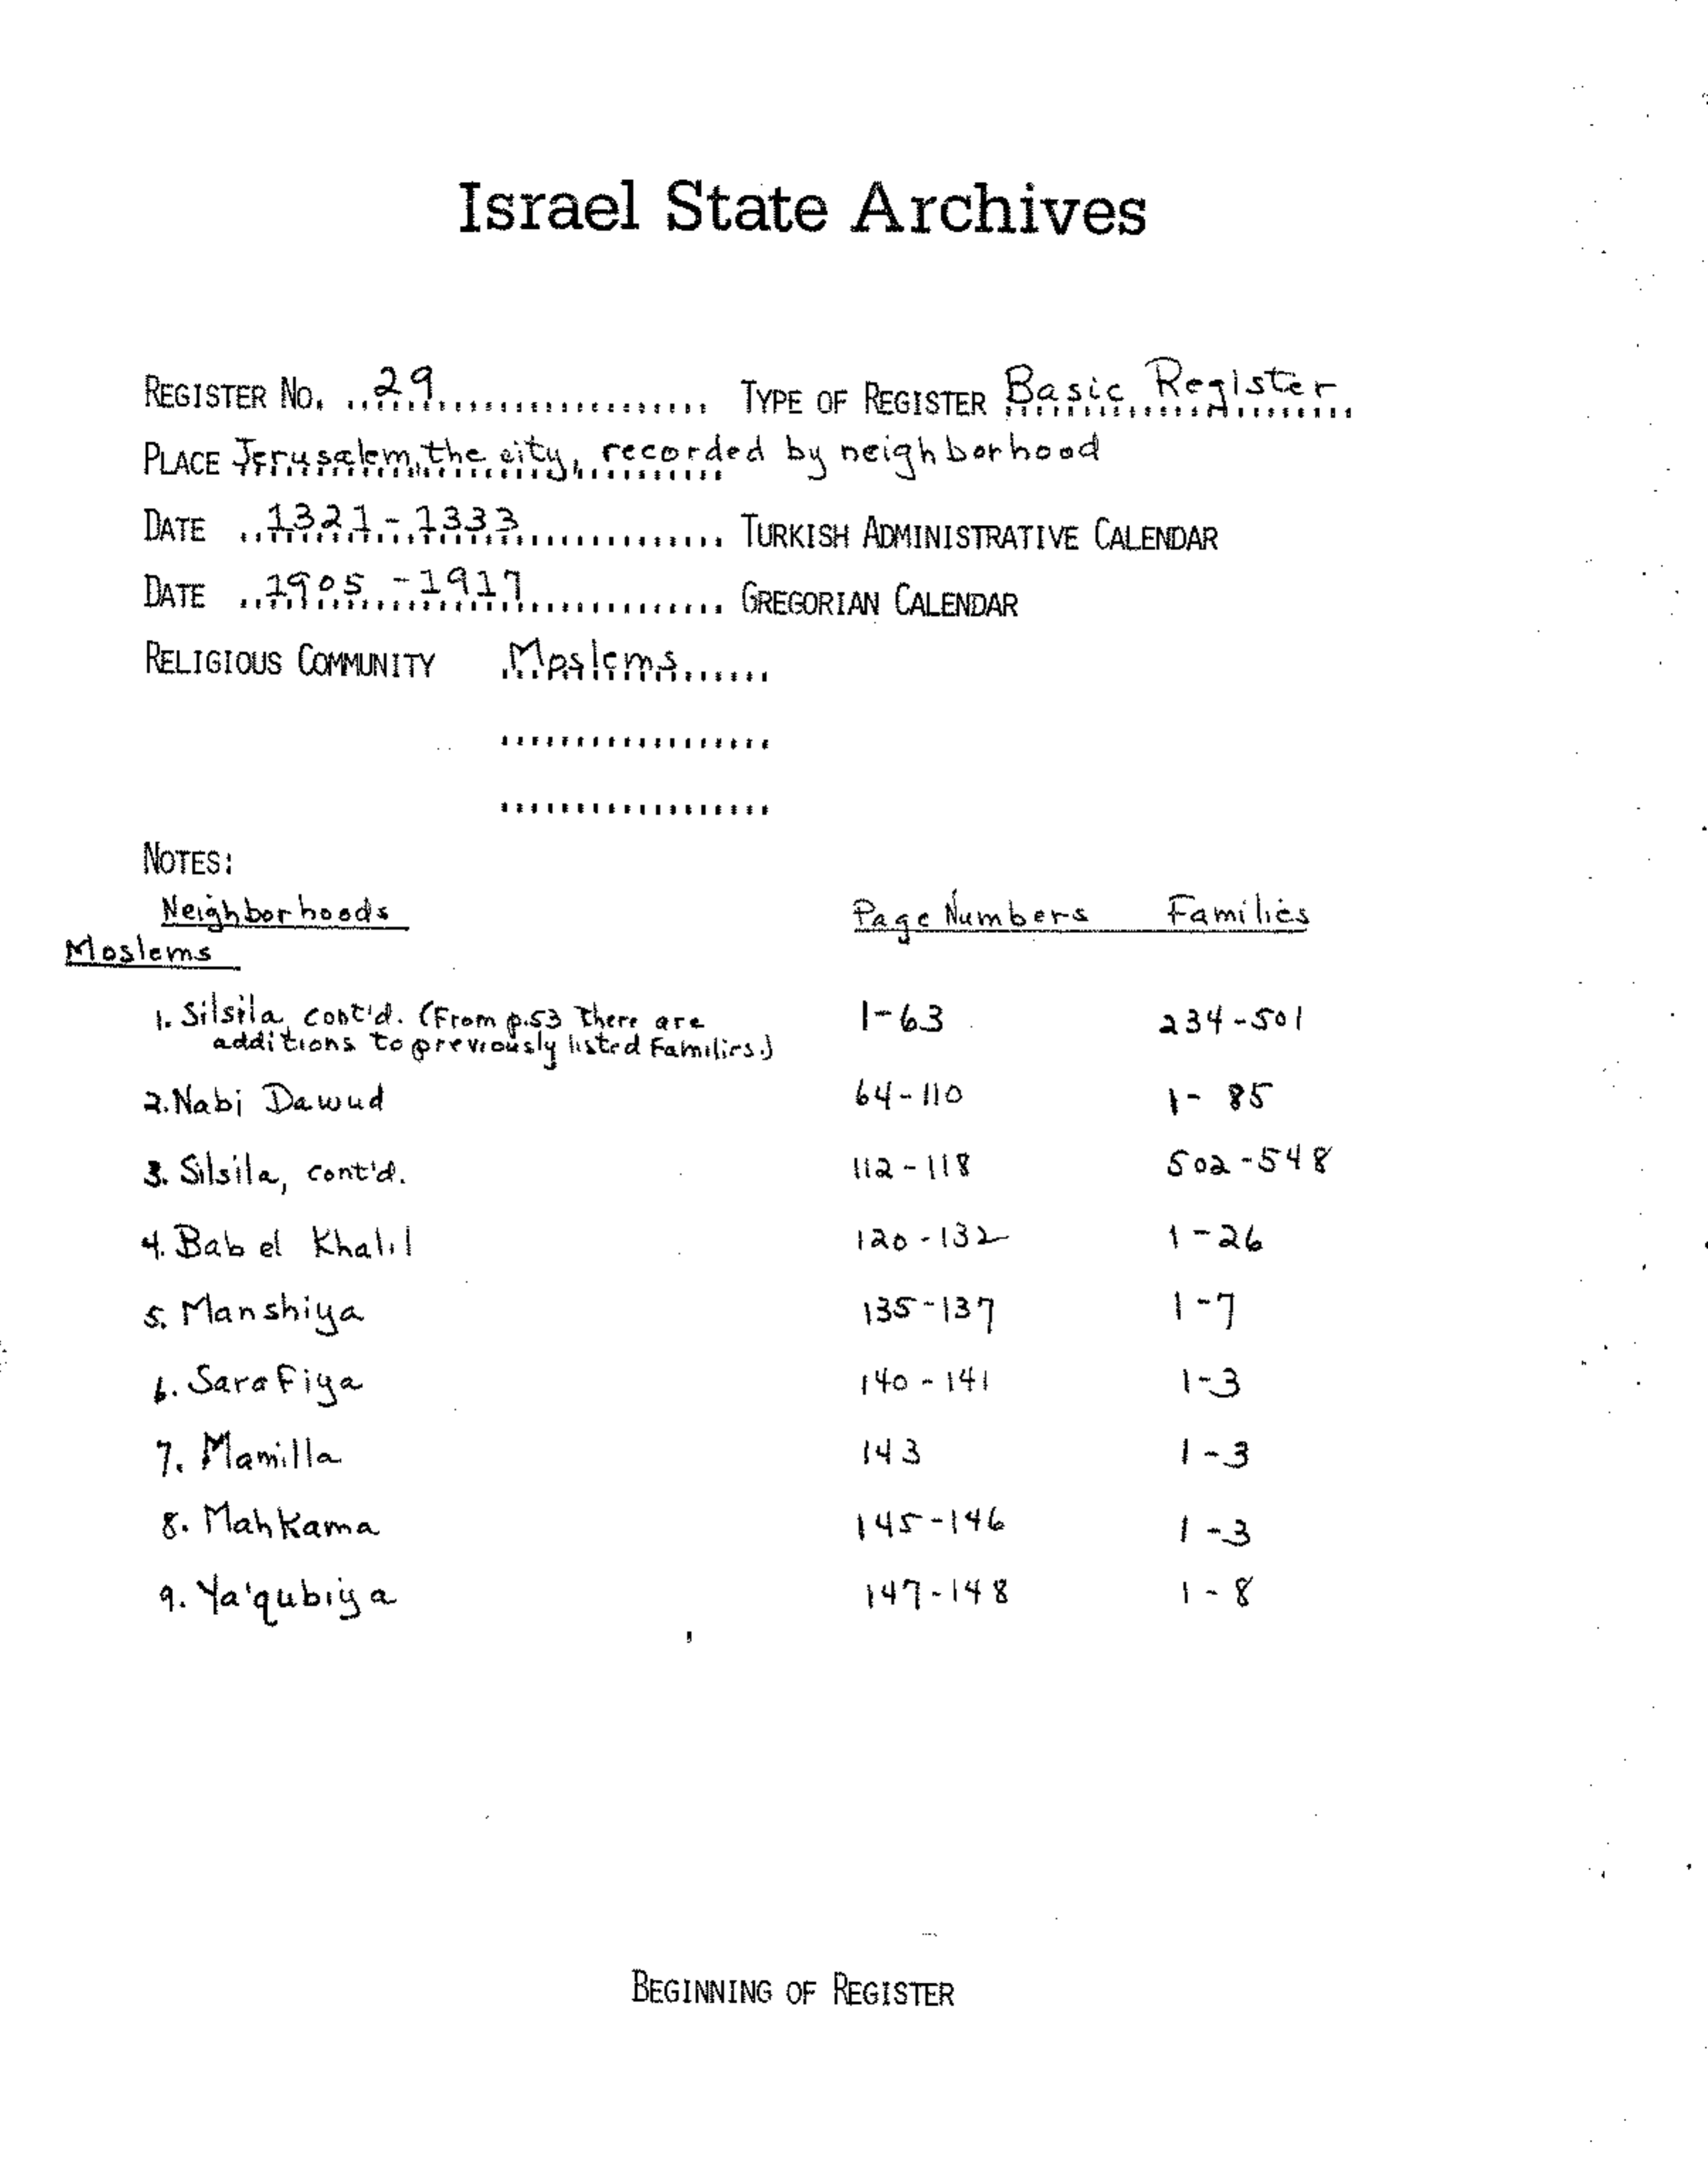 Israel State Archives
REGISTER NO. 29 TYPE OF REGISTER Basic Register
PLACE Jerusalem, the city, recorded by neighborhood
DATE 1321-1333 TURKISH ADMINISTRATIVE CALENDAR
DATE 1905-1917 GREGORIAN CALENDAR
RELIGIOUS COMMUNITY Moslems
NOTES:
Neighborhoods Page Numbers Families
Moslems
1. Silsila, cont'd. (From p.53 there are 1-63 234-501
additions to previously listed families.)
2. Nabi Dawud 64-110 1-85
3. Silsila, cont'd. 112-118 502-548
4. Bab el Khalil 120-132 1-26
5. Manshiya 135-137 1-7
6. Sarafiya 140-141 1-3
7. Mamilla 143 1-3
8. Mahkama 145-146 1-3
9. Ya'qubiya 147-148 1-8
BEGINNING OF REGISTER